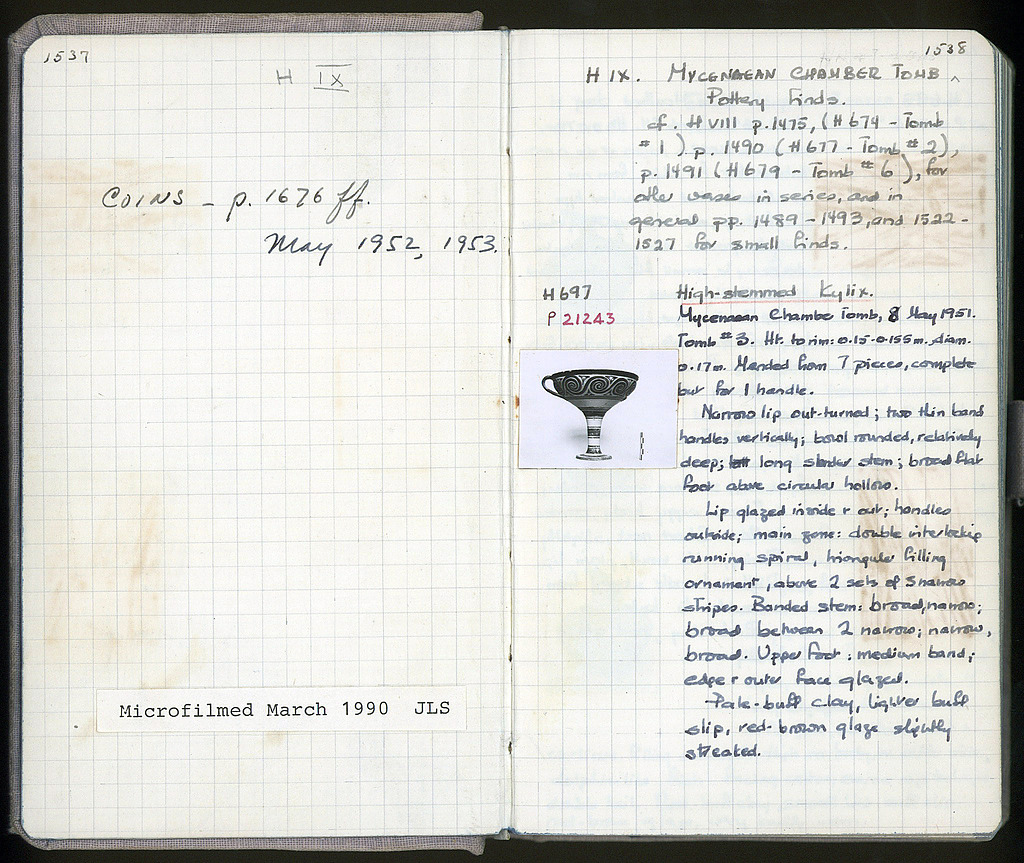 1537
H IX
COINS - p. 1676 ff.
May 1952, 1953.
Microfilmed March 1990 JLS
1538
H IX. MYCENAEAN CHAMBER TOMB
Pottery finds.
cf. H VIII p.1475, (H 674 - Tomb
#1) p. 1490 (H 677 - Tomb #2),
p. 1491 (H 679 - Tomb #6), for
other vases in series, and in
general pp. 1489 - 1493, and 1522 -
1527 for small finds.
H 697
P 21243
High-stemmed Kylix.
Mycenaean Chamber Tomb, 8 May 1951.
Tomb #3. Ht. to rim: 0.15-0.155m., diam.
0.17m. Mended from 7 pieces, complete
but for 1 handle.
Narrow lip out-turned; two thin band
handles vertically; bowl rounded, relatively
deep; long slender stem; broad flat
foot above circular hollow.
Lip glazed inside + out; handles
outside; main zone: double interlocking
running spiral, triangular filling
ornament, above 2 sets of 5 narrow
stripes. Banded stem: broad, narrow;
broad between 2 narrow; narrow,
broad. Upper foot: medium band;
edge + outer face glazed.
Pale-buff clay, lighter buff
slip, red-brown glaze slightly
streaked.